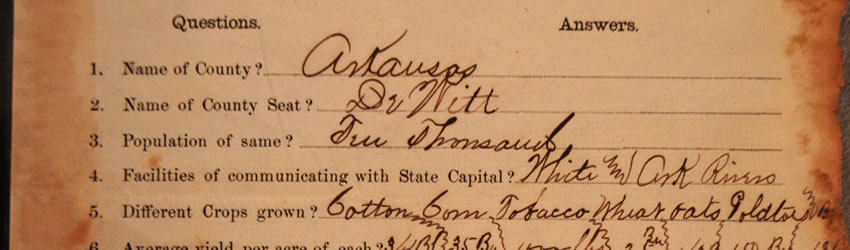 Questions. Answers.
1. Name of County? Arkansas
2. Name of County Seat? De Witt
3. Population of same? Ten Thousand
4. Facilities of communicating with State Capital? White and Ark Rivers
5. Different Crops grown? Cotton Corn Tobacco Wheat oats
6. Average yield per acre of each?